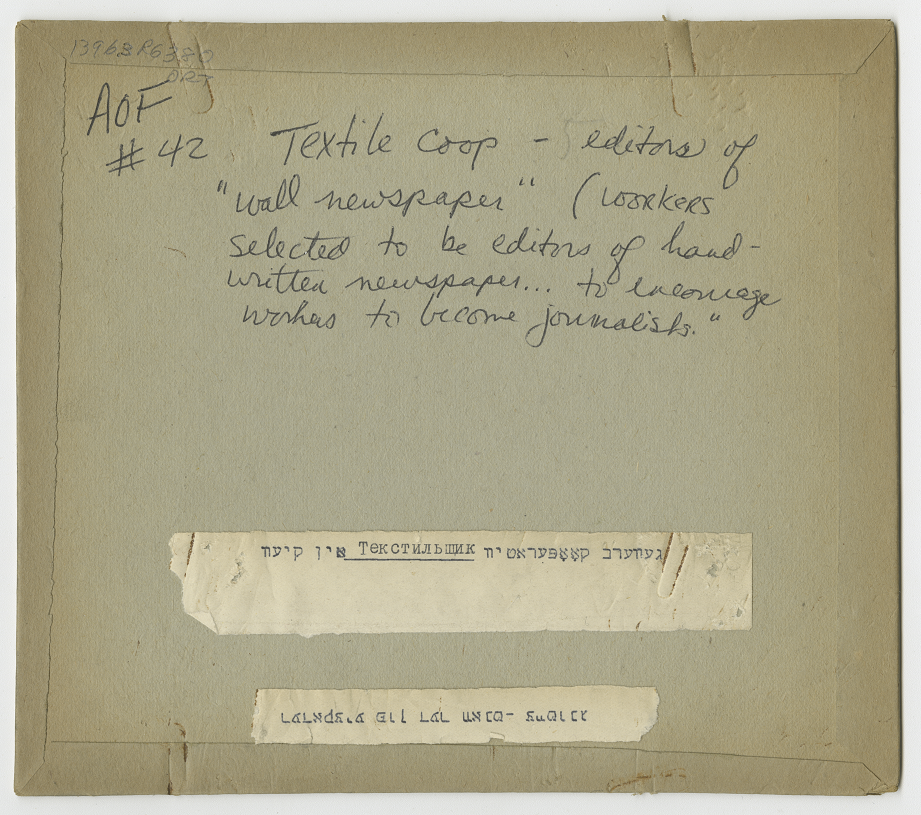 13963R6380
ORT
AOF
#42 Textile Coop - editors of
"wall newspaper" (WORKERS
selected to be editors of hand-
written newspaper... to encourage
workers to become journalists."
געװערב קאָאָפּעראַטיװ Текстильщик אין קיעװ
רעדאקציע פון דער װאנט-צײטונג